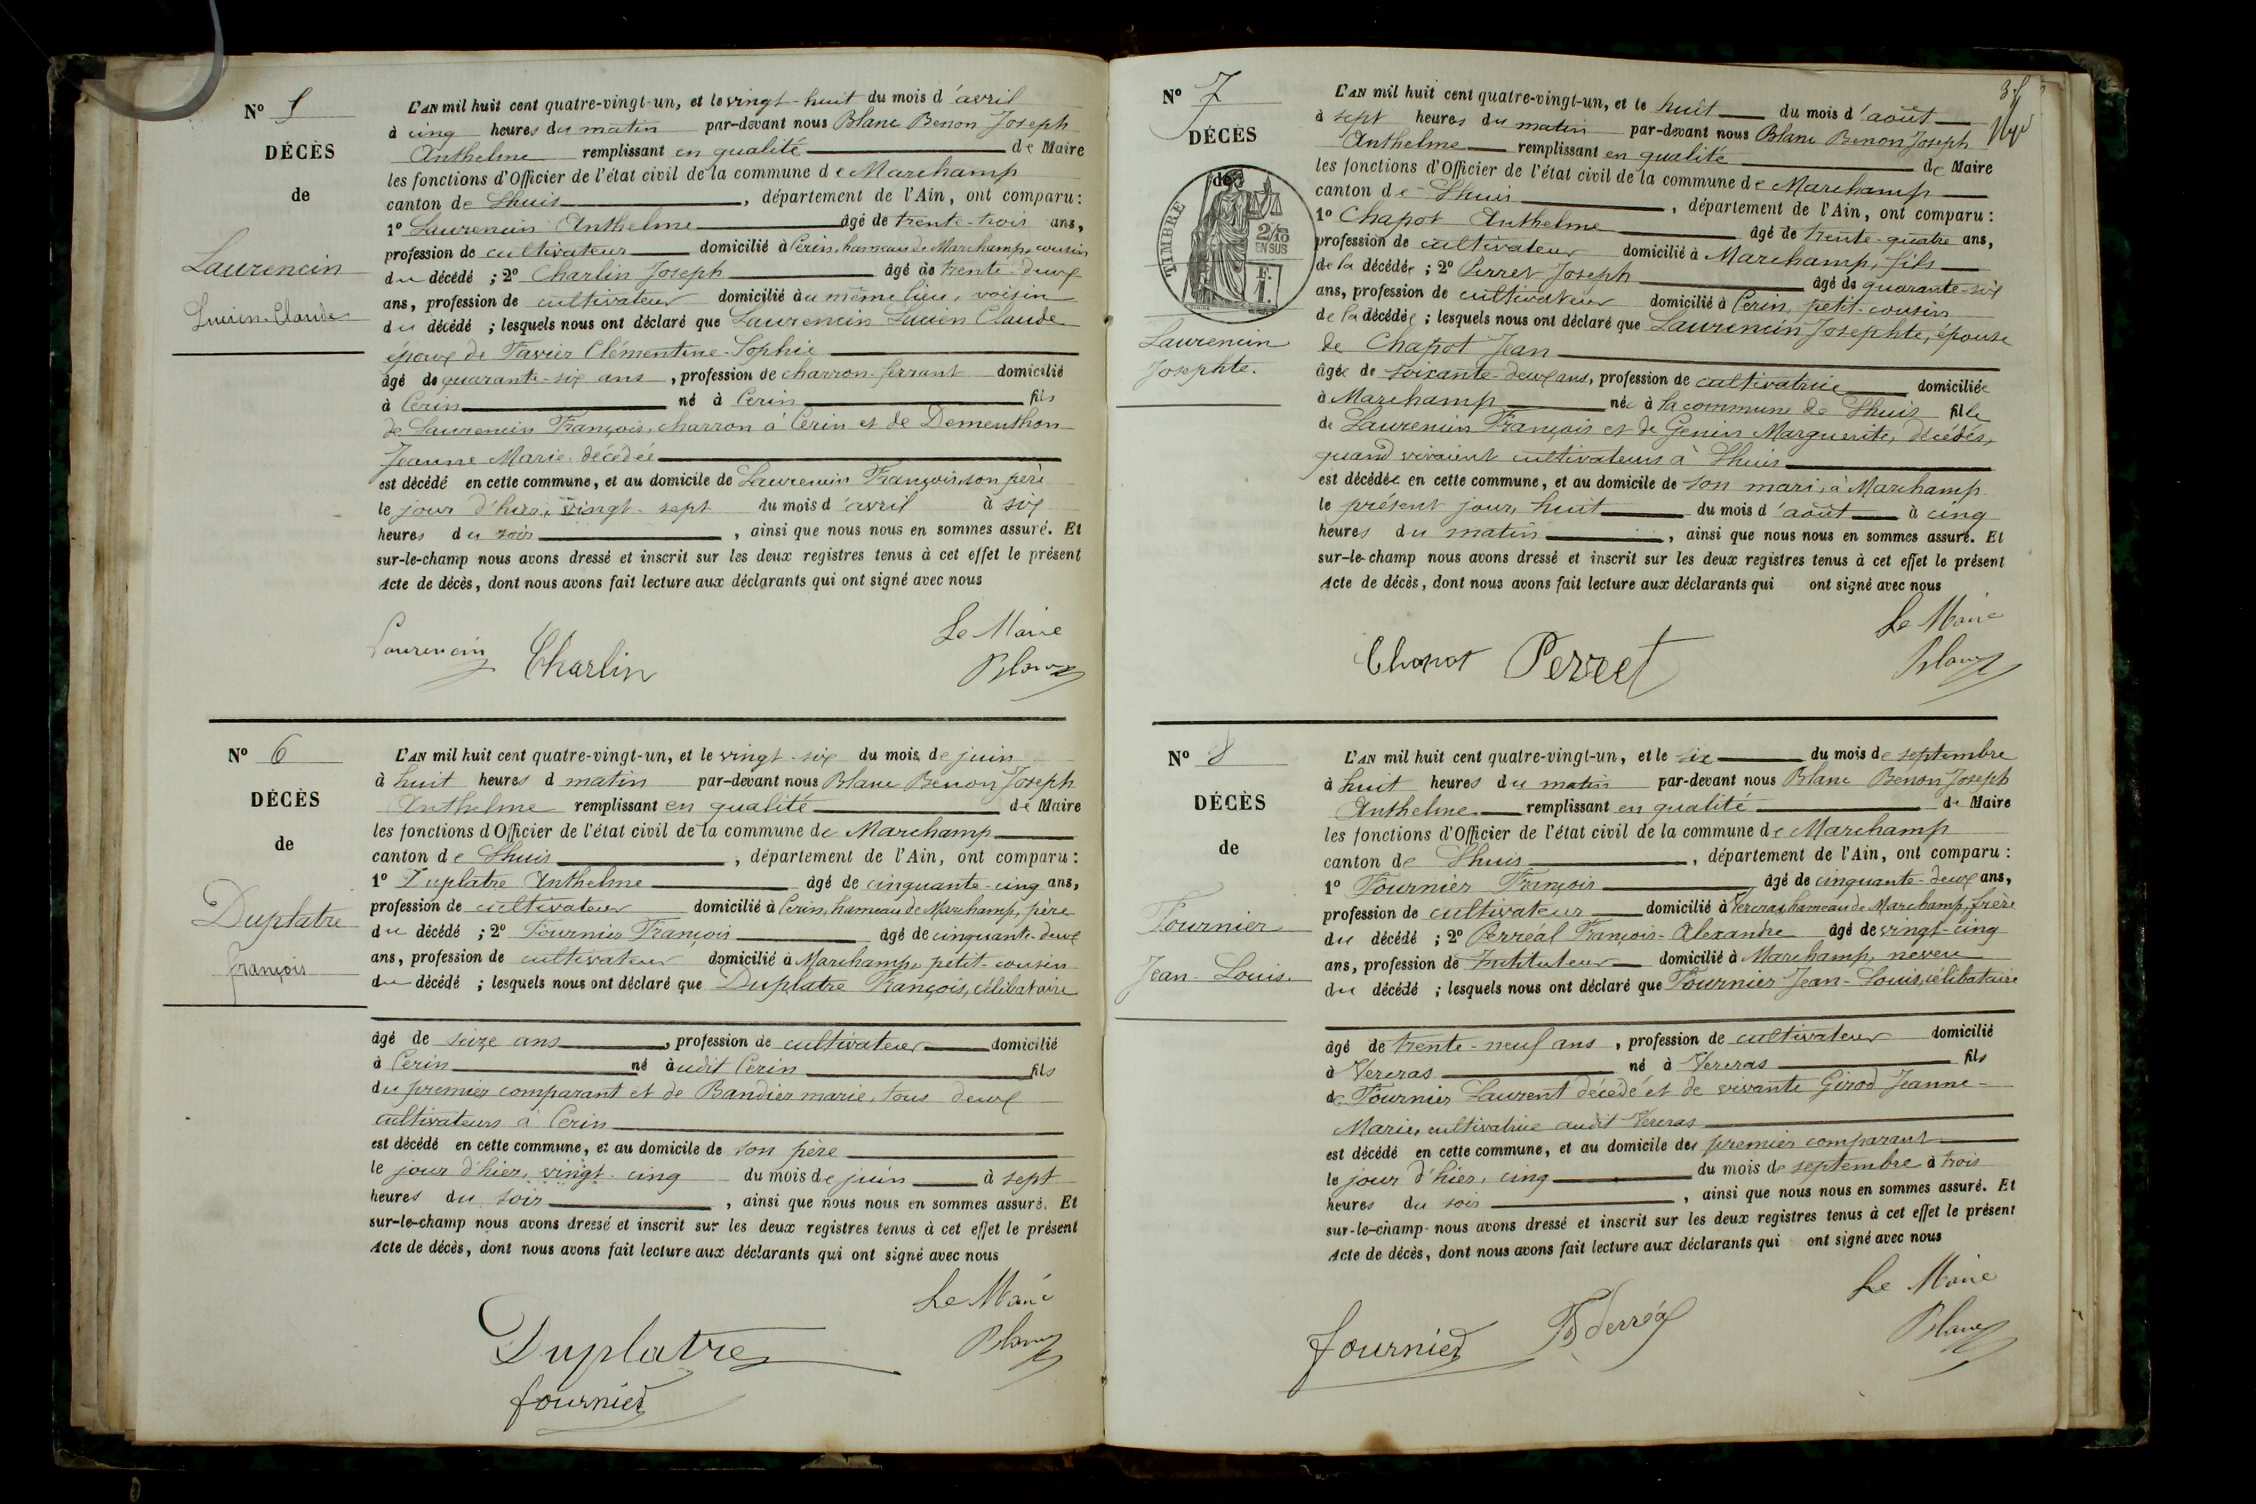 N° 5
DÉCÈS
de
Laurencin
Lucien Claude
L'AN mil huit cent quatre-vingt-un, et le vingt-huit du mois d'avril
à cinq heures du matin par-devant nous Blanc Benon Joseph
Anthelme remplissant en qualité de Maire
les fonctions d'Officier de l'état civil de la commune de Marchamp
canton de Lhuis, département de l'Ain, ont comparu :
1° Laurencin Anthelme âgé de trente-trois ans,
profession de cultivateur domicilié à Cerin, hameau de Marchamp, cousin
du décédé ; 2° Charlin Joseph âgé de trente-deux
ans, profession de cultivateur domicilié au même lieu, voisin
du décédé ; lesquels nous ont déclaré que Laurencin Lucien Claude
époux de Tavier Clémentine-Sophie
âgé de quarante-six ans, profession de charron-ferrant domicilié
à Cerin né à Cerin fils
de Laurencin François, charron à Cerin et de Dementhon
Jeanne Marie, décédée
est décédé en cette commune, et au domicile de Laurencin François, son père
le jour d'hier, vingt-sept du mois d'avril à six
heures du soir, ainsi que nous nous en sommes assuré. Et
sur-le-champ nous avons dressé et inscrit sur les deux registres tenus à cet effet le présent
Acte de décès, dont nous avons fait lecture aux déclarants qui ont signé avec nous
Le Maire
Laurencin Charlin Blanc
N° 6
DÉCÈS
de
Duplatre
François
L'AN mil huit cent quatre-vingt-un, et le vingt-six du mois de juin
à huit heures d matin par-devant nous Blanc Benon Joseph
Anthelme remplissant en qualité de Maire
les fonctions d'Officier de l'état civil de la commune de Marchamp
canton de Lhuis, département de l'Ain, ont comparu :
1° Duplatre Anthelme âgé de cinquante-cinq ans,
profession de cultivateur domicilié à Cerin, hameau de Marchamp, père
du décédé ; 2° Fournier François âgé de cinquante-deux
ans, profession de cultivateur domicilié à Marchamp, petit-cousin
du décédé ; lesquels nous ont déclaré que Duplatre François, célibataire
âgé de seize ans, profession de cultivateur domicilié
à Cerin né audit Cerin fils
du premier comparant et de Bandier marie, tous deux
cultivateurs à Cerin
est décédé en cette commune, et au domicile de son père
le jour d'hier, vingt-cinq du mois de juin à sept
heures du soir, ainsi que nous nous en sommes assuré. Et
sur-le-champ nous avons dressé et inscrit sur les deux registres tenus à cet effet le présent
Acte de décès, dont nous avons fait lecture aux déclarants qui ont signé avec nous
Le Maire
Duplatre Blanc
fournier
N° 7
DÉCÈS
de
TIMBRE
2/10
EN SUS
F.
1.
Laurencin
Josephte.
L'AN mil huit cent quatre-vingt-un, et le huit du mois d'août
à sept heures du matin par-devant nous Blanc Benon Joseph
Anthelme remplissant en qualité de Maire
les fonctions d'Officier de l'état civil de la commune de Marchamp
canton de Lhuis, département de l'Ain, ont comparu :
1° Chapot Anthelme âgé de trente-quatre ans,
profession de cultivateur domicilié à Marchamp, fils
de la décédée ; 2° Perret Joseph âgé de quarante-six
ans, profession de cultivateur domicilié à Cerin, petit-cousin
de la décédée ; lesquels nous ont déclaré que Laurencin Josephte, épouse
de Chapot Jean
âgée de soixante-deux ans, profession de cultivatrice domiciliée
à Marchamp née à la commune de Lhuis fille
de Laurencin François et de Genin Marguerite, décédés,
quand vivaient cultivateurs à Lhuis
est décédée en cette commune, et au domicile de son mari, à Marchamp
le présent jour, huit du mois d'août à cinq
heures du matin, ainsi que nous nous en sommes assuré. Et
sur-le-champ nous avons dressé et inscrit sur les deux registres tenus à cet effet le présent
Acte de décès, dont nous avons fait lecture aux déclarants qui ont signé avec nous
Le Maire
Chapot Perret Blanc
N° 8
DÉCÈS
de
Fournier
Jean-Louis.
L'AN mil huit cent quatre-vingt-un, et le six du mois de septembre
à huit heures du matin par-devant nous Blanc Benon Joseph
Anthelme remplissant en qualité de Maire
les fonctions d'Officier de l'état civil de la commune de Marchamp
canton de Lhuis, département de l'Ain, ont comparu :
1° Fournier François âgé de cinquante-deux ans,
profession de cultivateur domicilié à Vercras hameau de Marchamp, frère
du décédé ; 2° Perréal François-Alexandre âgé de vingt-cinq
ans, profession de Instituteur domicilié à Marchamp, neveu
du décédé ; lesquels nous ont déclaré que Fournier Jean-Louis, célibataire
âgé de trente-neuf ans, profession de cultivateur domicilié
à Vercras né à Vercras fils
de Fournier Laurent décédé et de vivante Girod Jeanne-
Marie, cultivatrice audit Vercras
est décédé en cette commune, et au domicile du premier comparant
le jour d'hier, cinq du mois de septembre à trois
heures du soir, ainsi que nous nous en sommes assuré. Et
sur-le-champ nous avons dressé et inscrit sur les deux registres tenus à cet effet le présent
Acte de décès, dont nous avons fait lecture aux déclarants qui ont signé avec nous
Le Maire
fournier Perréal Blanc